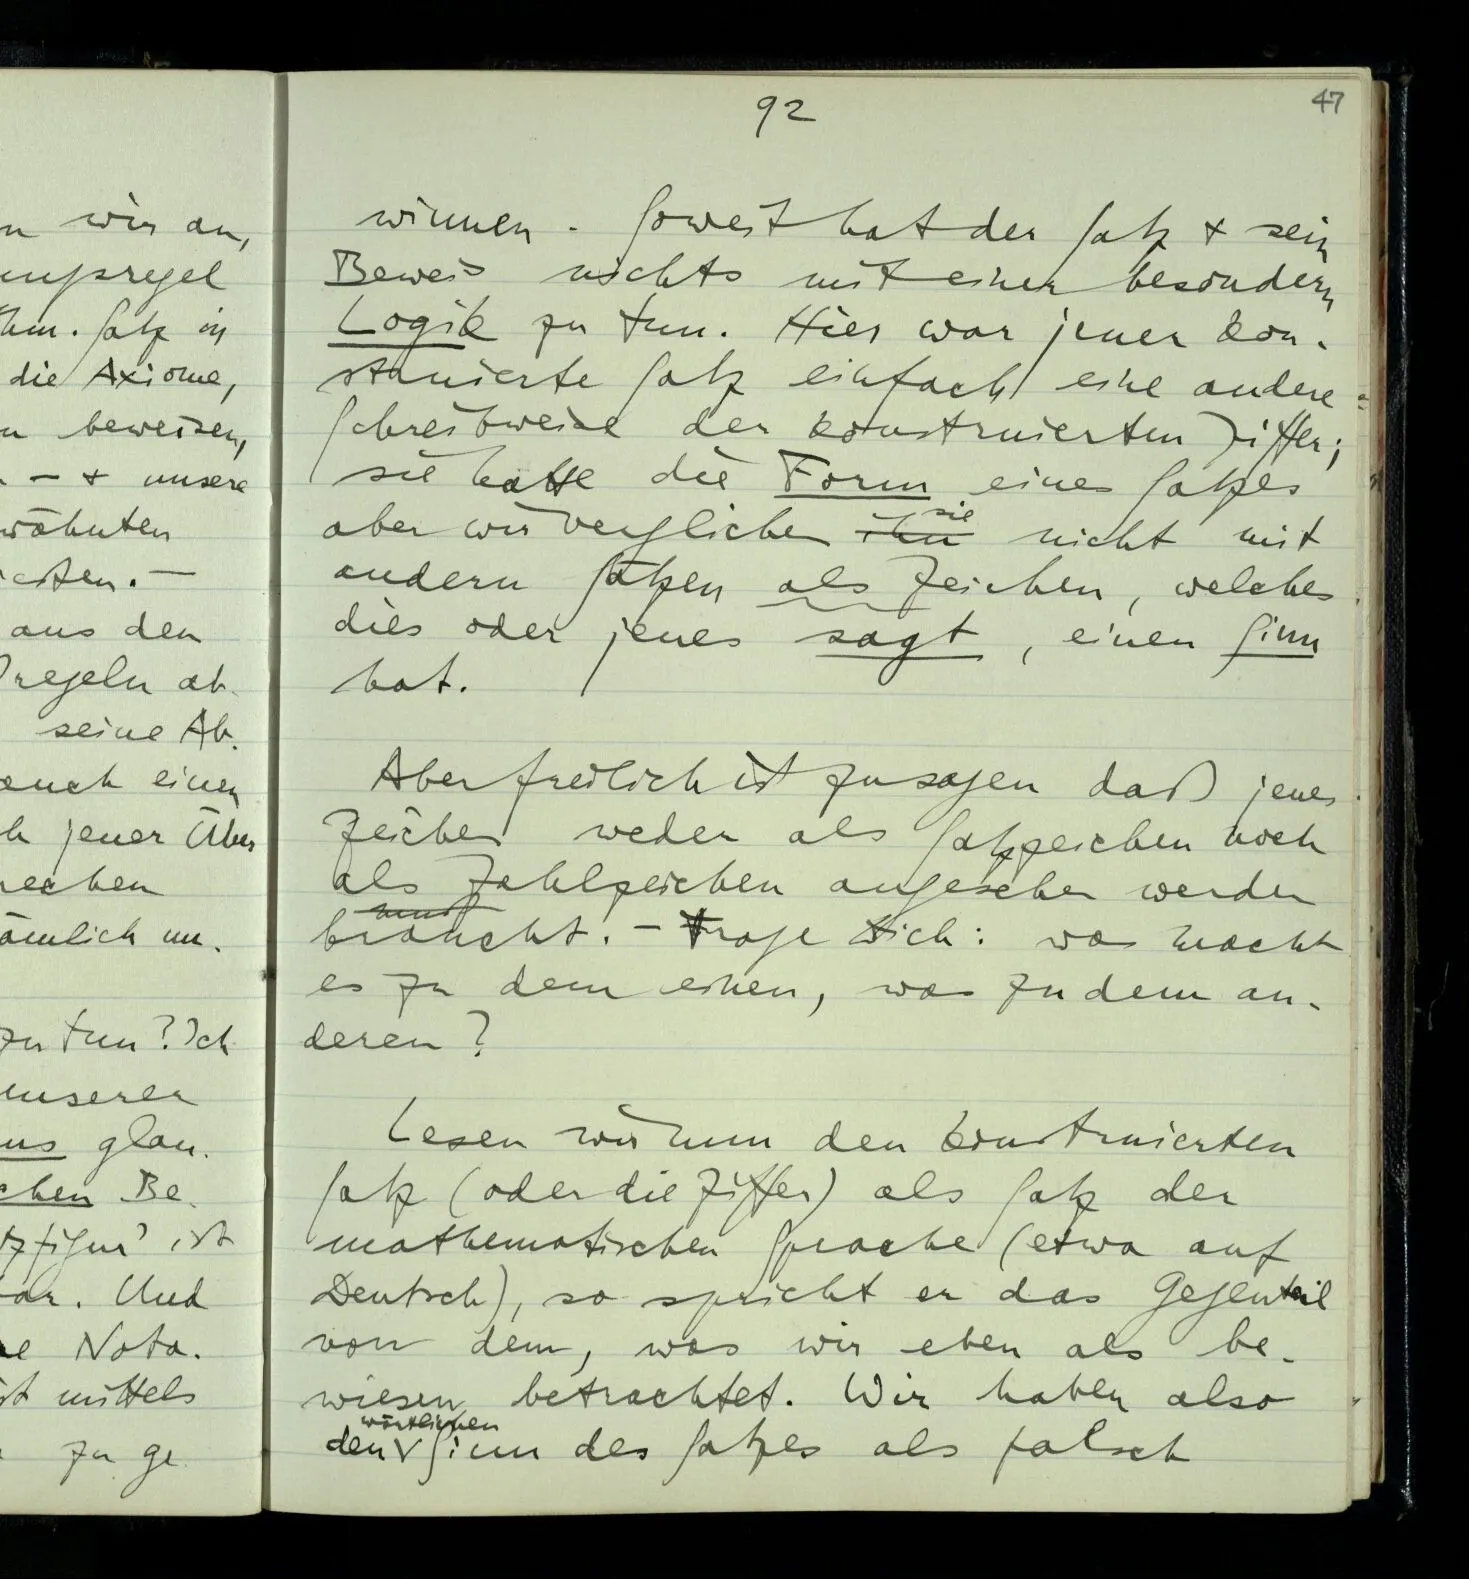 92
47
n wir an,
die Axiome,
n beweisen,
– + unsere
wähnten
aus den
regeln ab-
seine Ab-
auch einen
h jener Über
rechen
ämlich un-
zu tun? Ich
unserer
us glau-
chen Be-
tzfigur' ist
ar. Und
e Nota-
ist mittels
zu ge
winnen. Soweit hat der Satz + sein
Beweis nichts mit einer besondern
Logik zu tun. Hier war jener kon-
struierte Satz einfach eine andere
Schreibweise der konstruierten Ziffer;
sie hatte die Form eines Satzes
aber wir vergleichen ihn sie nicht mit
andern Sätzen als Zeichen, welches
dies oder jenes sagt, einen Sinn
hat.
Aber freilich ist zu sagen daß jenes
Zeichen weder als Satzzeichen noch
als Zahlzeichen angesehen werden
muß
braucht. – Frage Dich: was macht
es zu dem einen, was zu dem an-
deren?
Lesen wir nun den konstruierten
Satz (oder die Ziffer) als Satz der
mathematischen Sprache (etwa auf
Deutsch), so spricht er das Gegenteil
von dem, was wir eben als be-
wiesen betrachtet. Wir haben also
wörtlichen
den Sinn des Satzes als falsch